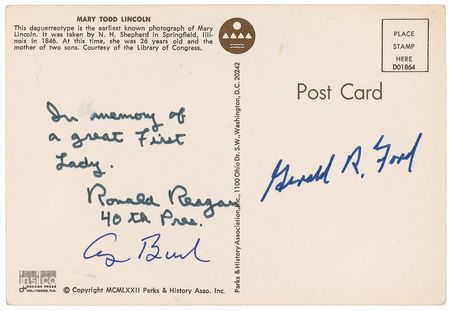 MARY TODD LINCOLN
This daguerreotype is the earliest known photograph of Mary
Lincoln. It was taken by N. H. Shepherd in Springfield, Illi-
nois in 1846. At this time, she was 26 years old and the
mother of two sons. Courtesy of the Library of Congress.
PLACE
STAMP
HERE
D01864
Post Card
In memory of
a great First
Lady.
Ronald Reagan
40th Pres.
G Bush
Gerald R. Ford
Parks & History Association, Inc., 1100 Ohio Dr. S.W., Washington, D.C. 20242
HOLLYWOOD, FLA.
© Copyright MCMLXXII Parks & History Asso. Inc.